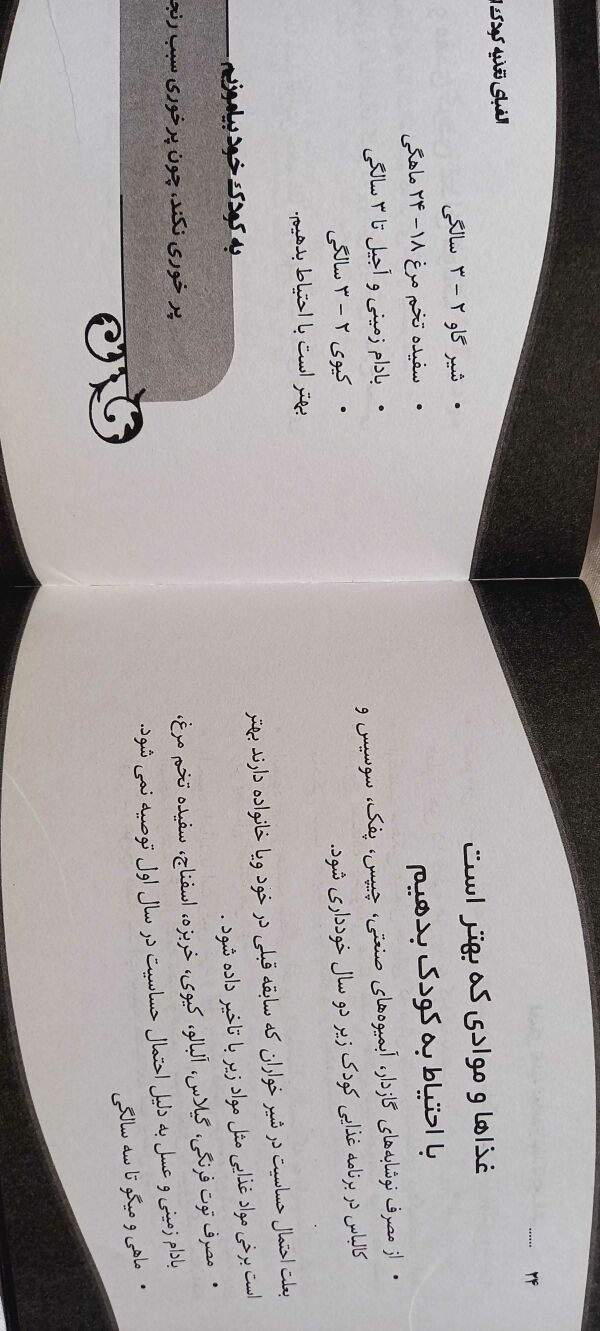 ۲۴ ......
غذاها و موادی که بهتر است
با احتیاط به کودک بدهیم
• از مصرف نوشابه‌های گازدار، آبمیوه‌های صنعتی، چیپس، پفک، سوسیس و
کالباس در برنامه غذایی کودک زیر دو سال خودداری شود.
بعلت احتمال حساسیت در شیر خواران که سابقه قبلی در خود ویا خانواده دارند بهتر
است برخی مواد غذایی مثل مواد زیر با تاخیر داده شود .
• مصرف توت فرنگی، گیلاس، آلبالو، کیوی، خربزه، اسفناج، سفیده تخم مرغ،
بادام زمینی و عسل به دلیل احتمال حساسیت در سال اول توصیه نمی شود.
• ماهی و میگو تا سه سالگی
الفبای تغذیه کودک
• شیر گاو ۲ – ۳ سالگی
• سفیده تخم مرغ ۱۸- ۲۴ ماهگی
• بادام زمینی و آجیل تا ۳ سالگی
• کیوی ۲ – ۳ سالگی
بهتر است با احتیاط بدهیم.
به کودک خود بیاموزیم
پر خوری نکند، چون پر خوری سبب